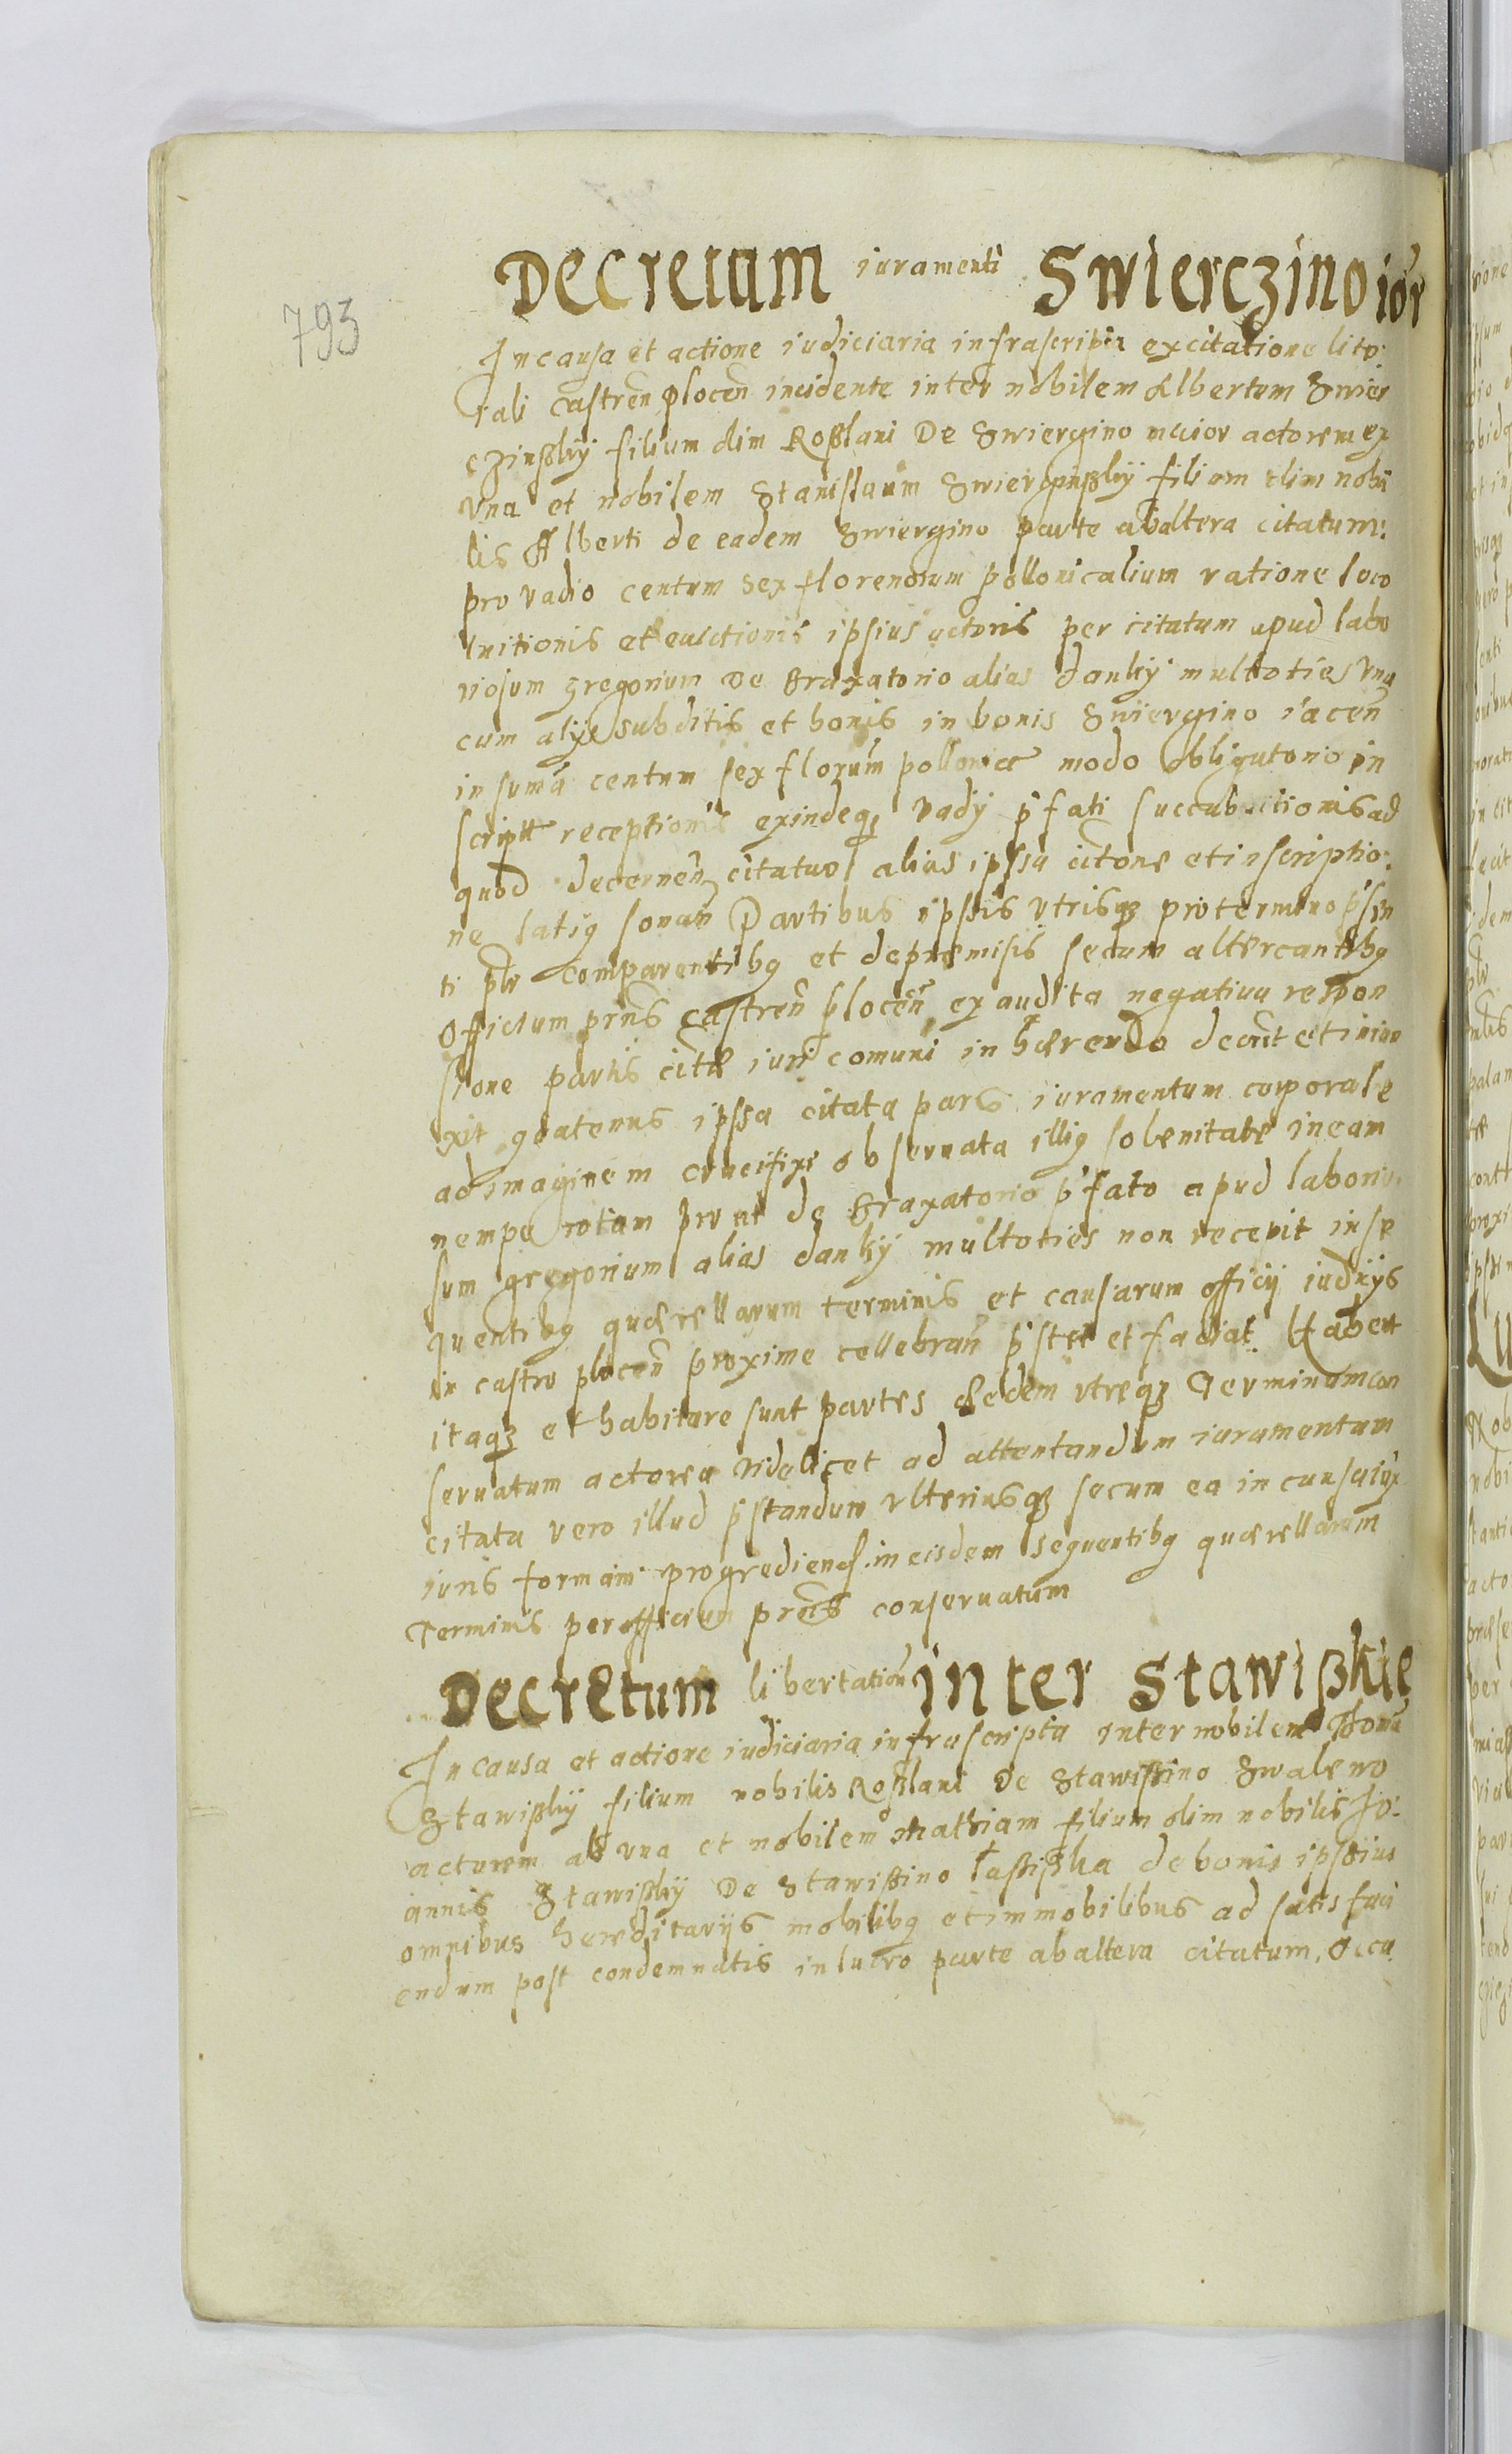 793
Decretum iuramenti Swierczino ior
In causa et actione iudiciaria infrascripta ex citatione lito:
rali castren̄ plocen̄ incidente inter nobilem Albertum Swier
czinßkij filium olim Roßlani De Swierczino maior actorem ex
vna et nobilem Stanislaum Swierczinßkij filium olim nobi
lis Alberti de eadem Swierczino parte ab altera citatum:
pro vadio centum sex florenorum pollonicalium ratione
et euictionis ipsius actoris per citatum apud labo
riosum gregorium De braxatorio alias danky multoties vna
cum alijs subditis et bonis in bonis Swierczino iacen̄
in suma centum sex florum pollonice modo obligatorio in
script receptionis exindeq; vadij p̄fati succubitionis ad
quod decernen̄ citatus alias ipsa citone et inscriptio:
ne latig sonan̄ Partibus ipsis vtrisq; pro termino p̄sen
ti plr comparentibg et de premisis secum altercantibg
Officium prn̄s Castren̄ plocen̄ exaudita negatiua respon
sione partis citte iuri comuni inhærendo decreuit et iniun
xit quatenus ipsa citata pars iuramentum corporale
ad imaginem crucifixi obseruata illig solenitate in eam
nempe rotam prout de braxatorio p̄fato apud laborio.
sum gregorium alias danky multoties non recepit in se
quentibg quærellarum terminis et causarum officij iudicijs
in castro plocen̄ proxime cellebran̄ p̄stet et faciat. Habent
itaq; et habiture sunt partes eædem vtreq; Terminum con
seruatum actorea videlicet ad attentandum iuramentum
citata vero illud p̄standum vlteriusq; secum ea in causa iux
iuris formam progrediend. in eisdem sequentibg quærellarum
Terminis per officium prn̄s conseruatum
Decretum libertation̄ inter Stawißkie
In causa et actione iudiciaria infrascripta inter nobilem Thoma
Stawißkij filium nobilis Roßlani De Stawißino Gwalewo
actorem ab vna et nobilem Mathiam filium olim nobilis Jo:
annis Stawißkij De Stawißino Laßißka de bonis ipsius
omnibus hereditarijs mobilibg et immobilibus ad satisfaci
endum post condemnatis in lucro parte ab altera citatum, occa